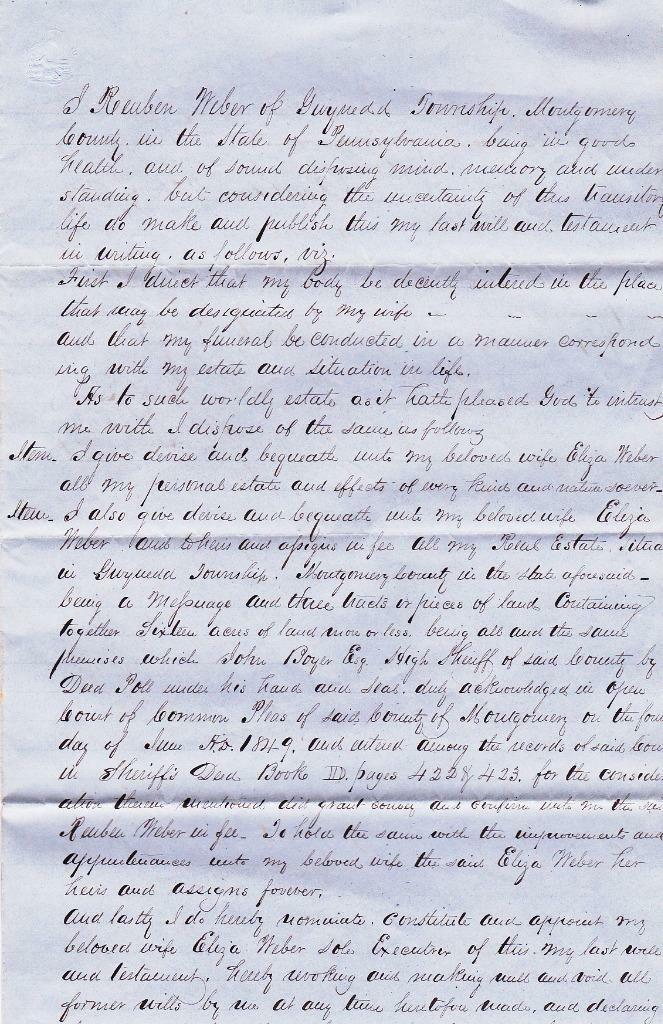 I Reuben Weber of Gwynedd Township. Montgomery
County. in the State of Pennsylvania. being in good
health. and of sound disposing mind. memory and under
standing. but considering the uncertainty of this transitory
life do make and publish this my last will and testament
in writing. as follows. viz.
First I direct that my body be decently intered in the place
that may be designated by my wife –
and that my funeral be conducted in a manner correspond
ing with my estate and situation in life.
As to such worldly estate as it hath pleased God to intrust
me with I dispose of the same as follows
Item – I give devise and bequeath unto my beloved wife Eliza Weber
all my personal estate and effects of every kind and nature soever –
Item – I also give devise and bequeath unto my beloved wife Eliza
Weber and to heirs and assigns in fee all my Real Estate. situa
in Gwynedd Township. Montgomery County in the State aforesaid –
being a Messuage and three tracts or pieces of land Containing
together Sixteen acres of land more or less. being all and the same
premises which John Boyer Esq. High Sheriff of said County by
Deed Poll under his hand and seal. duly acknowledged in open
Court of Common Pleas of said County of Montgomery on the four
day of June A.D. 1849. and entered among the records of said Cou
in Sheriff's Deed Book pages 422 & 423. for the consider
ation therein mentioned did grant convey and confirm unto me the said
Reuben Weber in fee – To hold the same with the improvements and
appurtenances unto my beloved wife the said Eliza Weber her
heirs and assigns forever.
And lastly I do hereby nominate. constitute and appoint my
beloved wife Eliza Weber sole Executrix of this. my last will
and testament. hereby revoking and making null and void all
former wills by me at any time heretofore made. and declaring